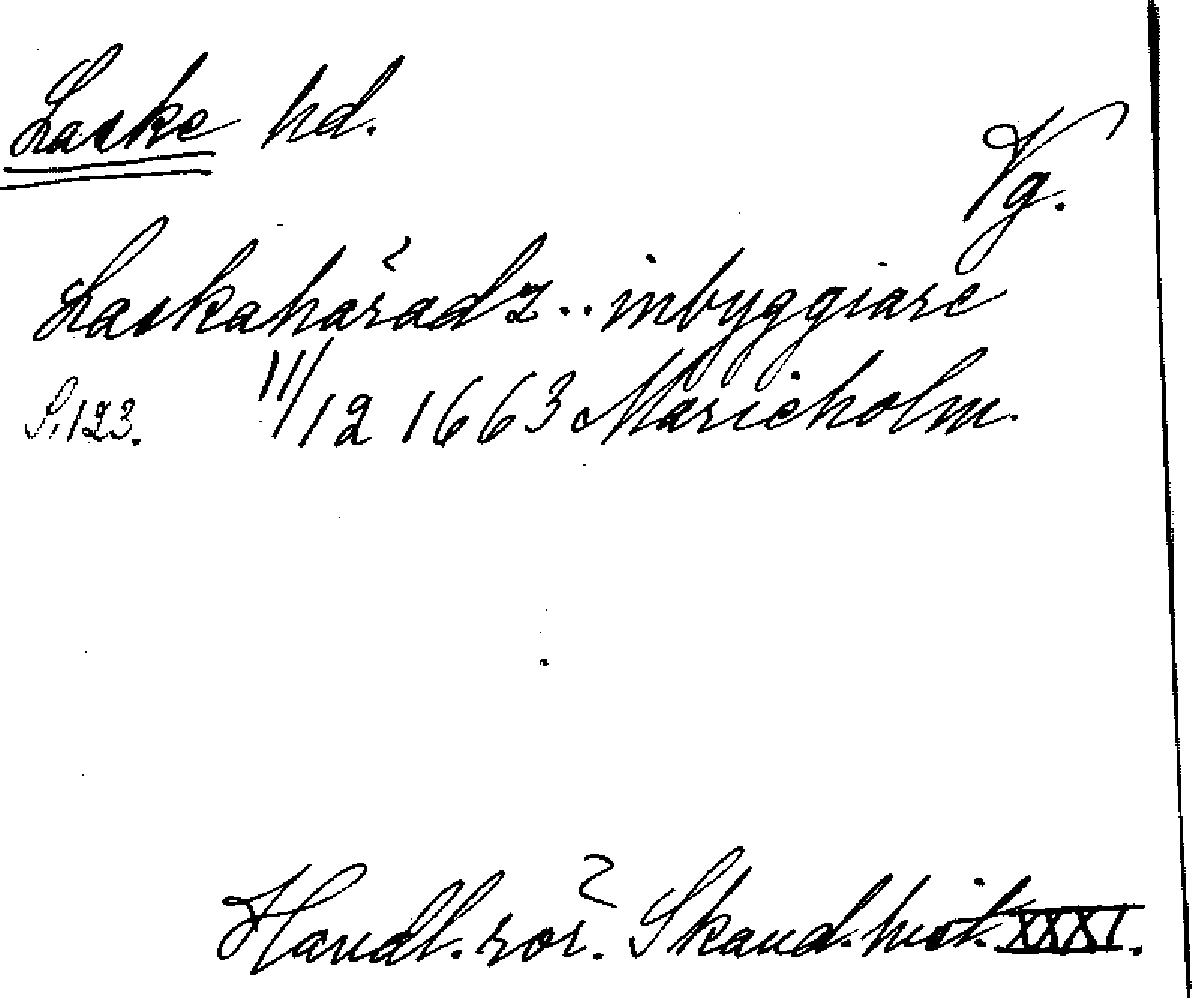 Laske hd.
Vg.
Laskahäradz.. inbyggiare
S. 123. 11/12 1663 Marieholm.
Handl. rör. Skand. hist. XXXI.